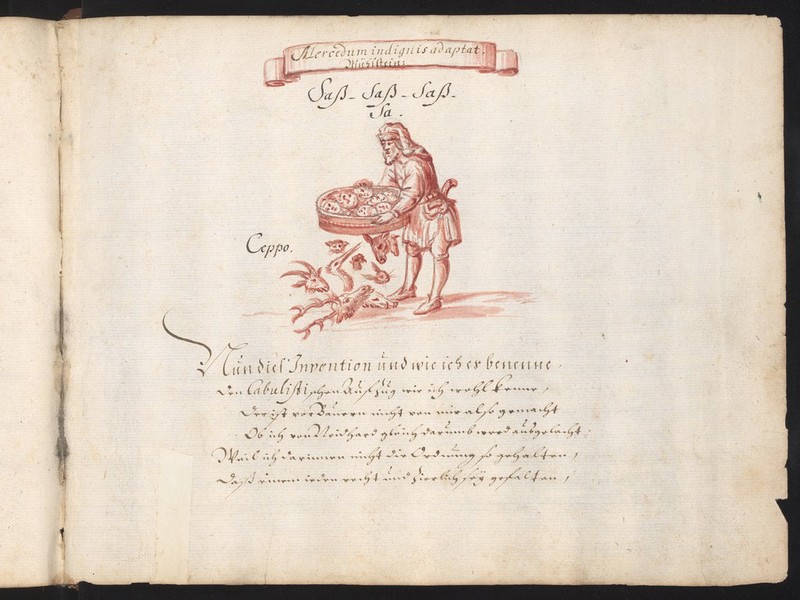 Mercedum indignis adaptat.
Mühlstein:
Saß - Saß - Saß -
Sa.
Ceppo.
Nun dieß Invention und wie ich es benenne,
Den Cabulistischen Aufzug wie ich wohl kenne,
Der ist vor Bauern nicht von mir also gemacht
Ob ich von Neidhard gleich darumb werd ausgelacht,
Weil ich darinnen nicht die Ordnung so gehalten,
Daß einem ieden recht und zierlich sey gefalten,